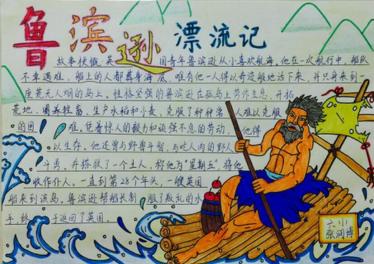 鲁滨逊漂流记
故事梗概,英国青年鲁滨逊从小喜欢航海,他在一次航行中,船队
不幸遇难,船上的人都葬身海底,唯有他一人得以奇迹般地活下来,并只身来到一
座荒无人烟的岛上。性格坚强的鲁滨逊在孤岛上劳作生息,开拓
荒地,圈养牲畜,生产水稻和小麦,克服了种种常人难以克服
的困难,凭着惊人的毅力和顽强不息的劳动,
以生存,他还曾与野兽斗智,与吃人肉的野人
斗勇,并搭救了一个土人,称他为“星期五”将他
收作仆人,一直到第28年头,一艘英国
船来到该岛,鲁滨逊帮船长制服了叛乱的水
手,终于返回了英国
六、